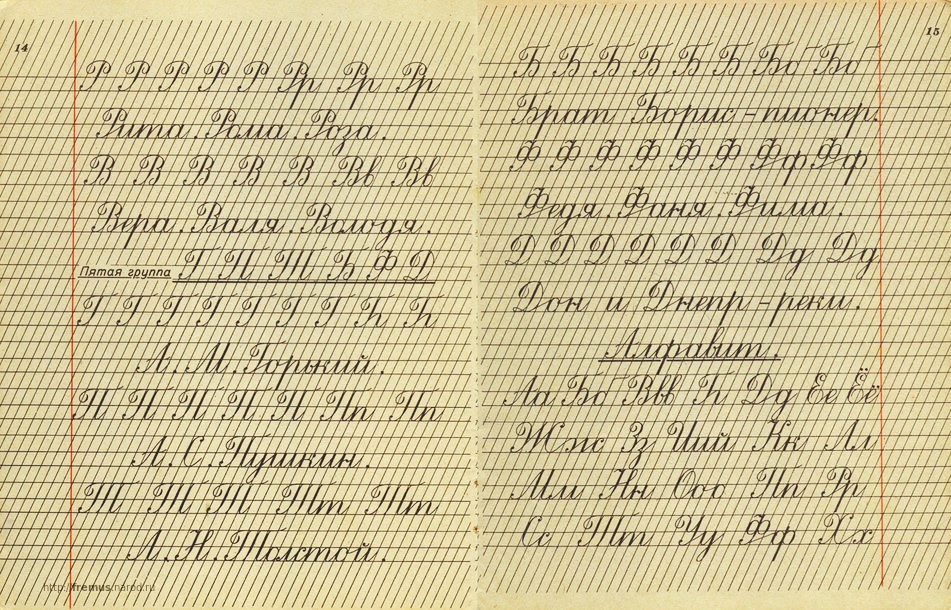 14
Р Р Р Р Р Рр Рр Рр
Рита. Рома. Роза.
В В В В В Вв Вв
Вера. Валя. Володя.
Пятая группа Г П Т Б Ф Д
Г Г Г Г Г Г Г Гг Гг
А. М. Горький.
П П П П П Пп Пп
А. С. Пушкин.
Т Т Т Тт Тт
Л. Н. Толстой.
http://fremus.narod.ru
15
Б Б Б Б Б Б Бб Бб
Брат Борис – пионер.
Ф Ф Ф Ф Ф Ф Фф Фф
Федя. Фаня. Фима.
Д Д Д Д Д Д Дд Дд
Дон и Днепр – реки.
Алфавит.
Аа Бб Ввв Гг Дд Ее Ёё
Жж Зз Иий Кк Лл
Мм Нн Ооо Пп Рр
Сс Тт Уу Фф Хх